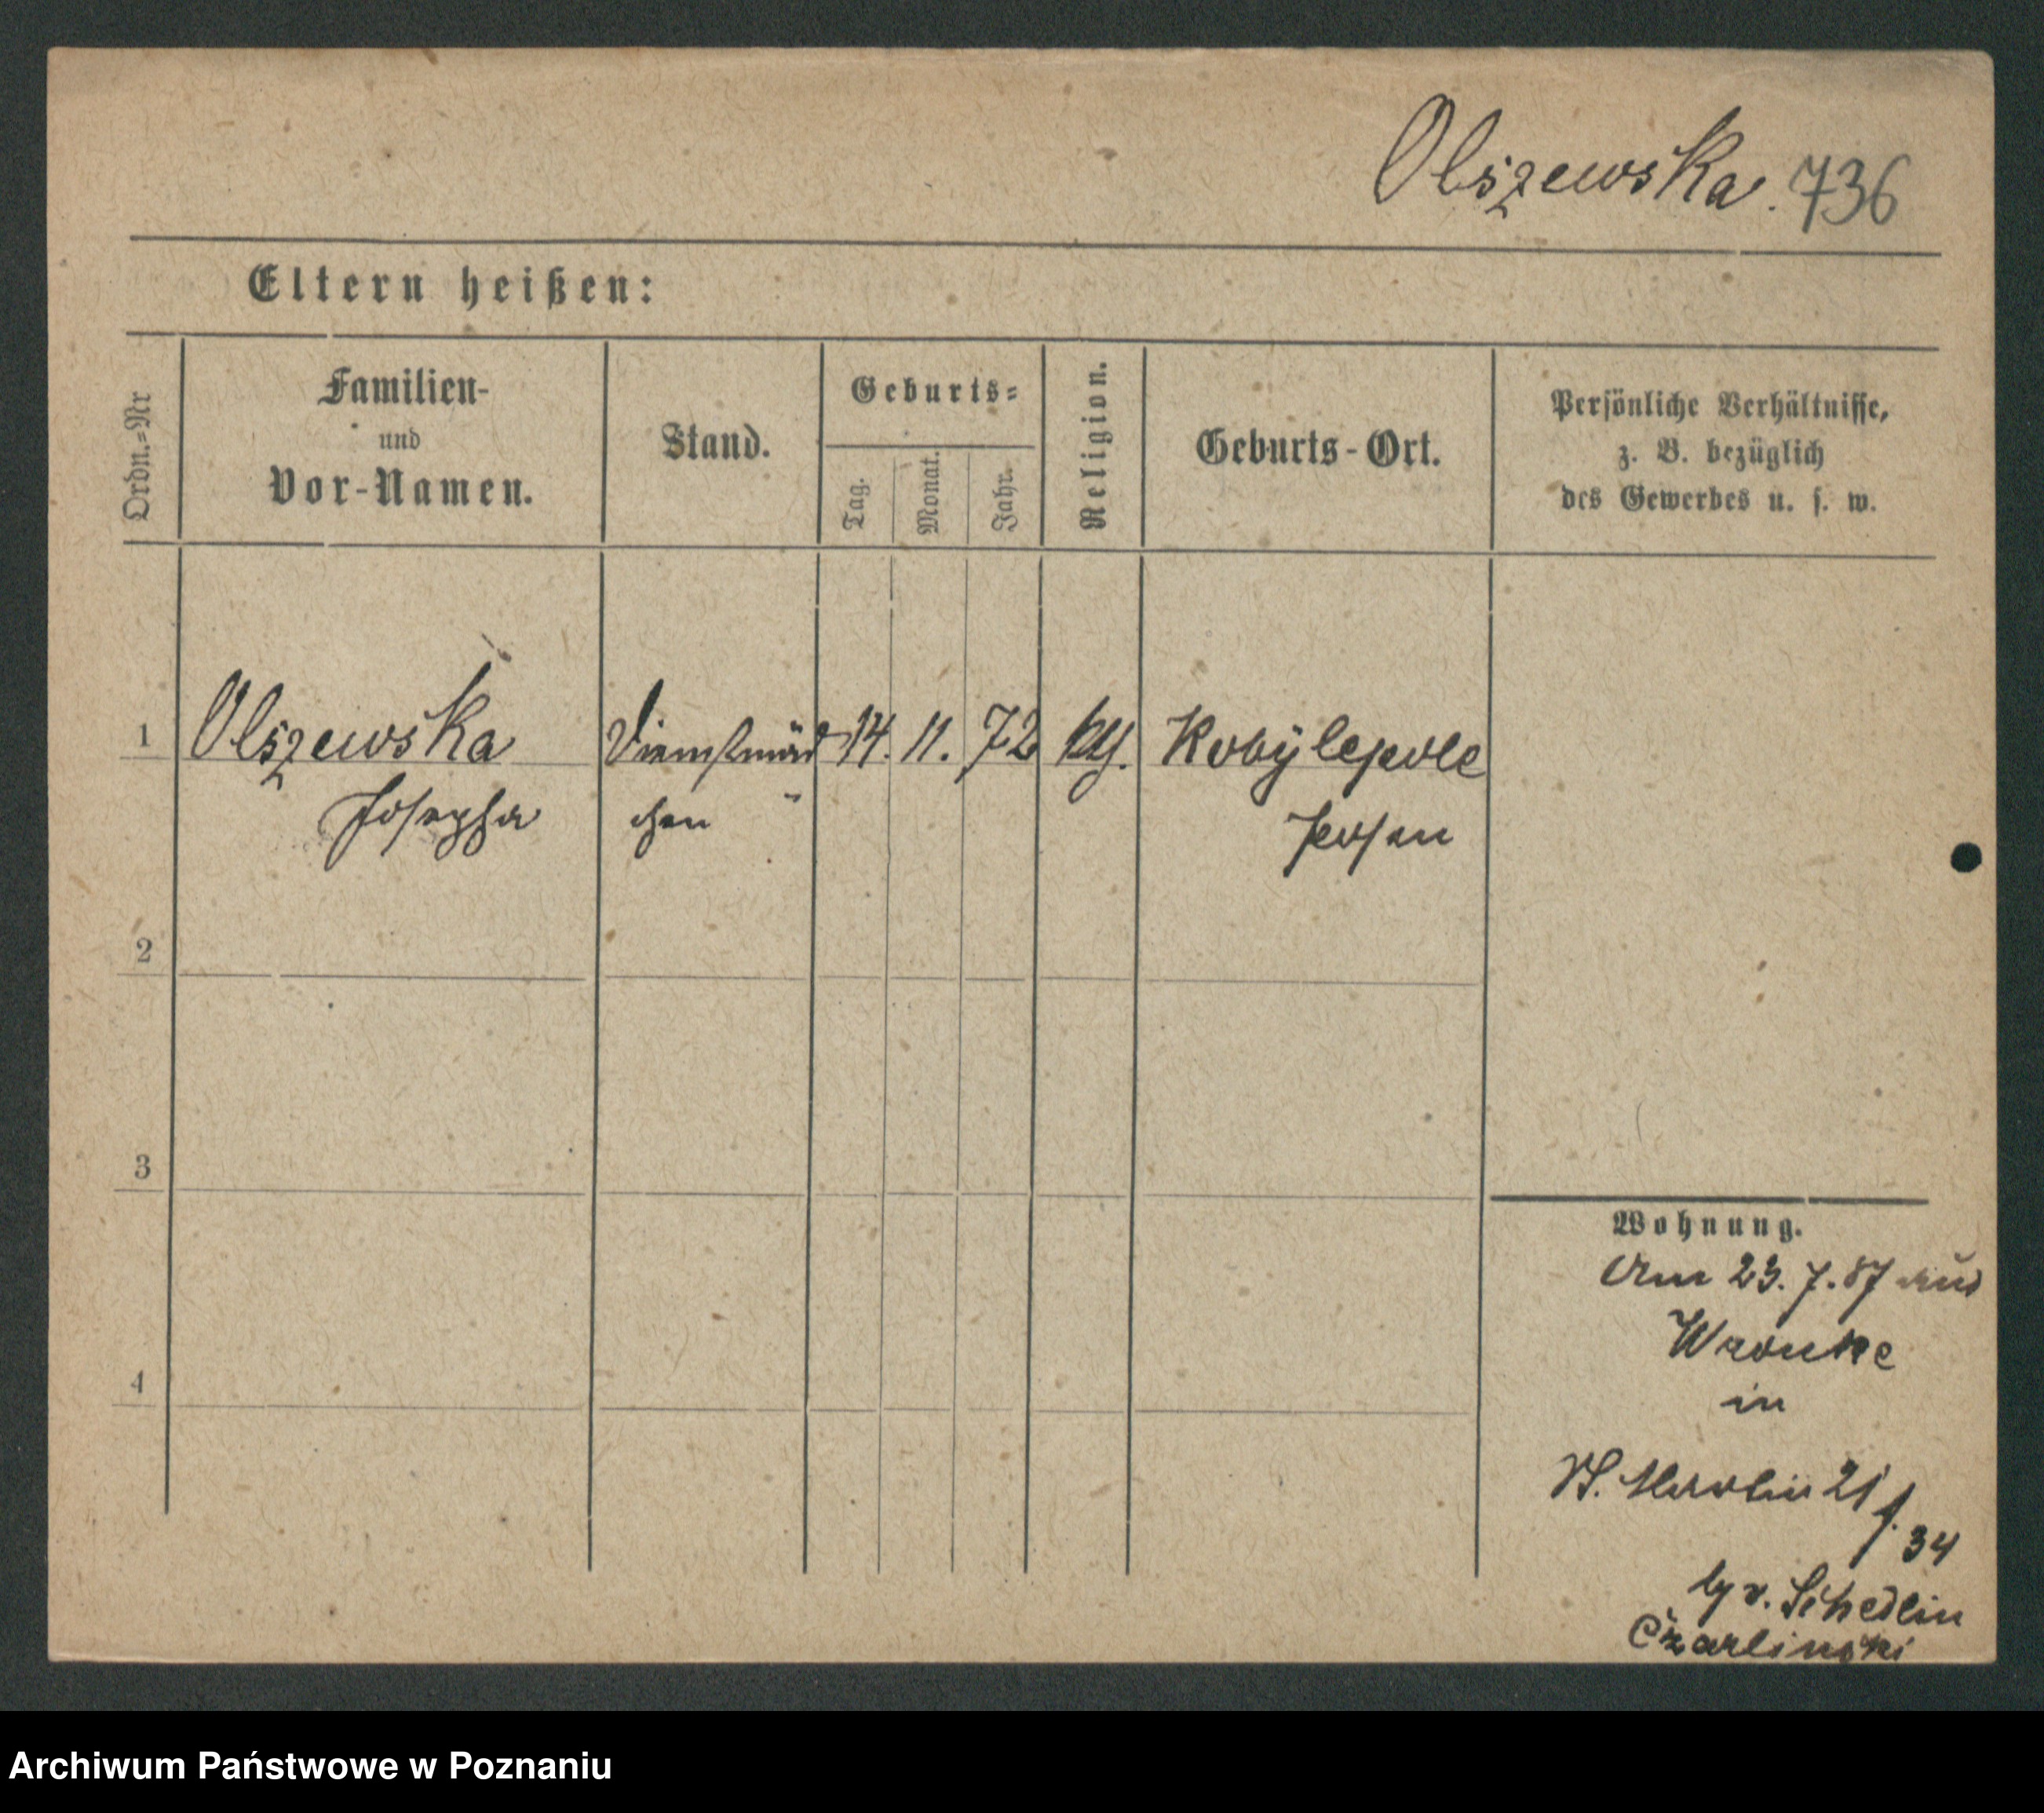 Olszewska. 736
Eltern heißen:
Ordn.=Nr
Familien-
und
Vor-Namen.
Stand.
Geburts=
Tag.
Monat.
Jahr.
Religion.
Geburts-Ort.
Persönliche Verhältnisse,
z. B. bezüglich
des Gewerbes u. s. w.
1 Olszewska Dienstmäd 14. 11. 72 kth. Kobylepole
Josepha chen Posen
2
3
4
Wohnung.
Am 23. 7. 87 aus
Wronke
in
St. Martin 21
34
v. Schedlin
Czarlinski
Archiwum Państwowe w Poznaniu